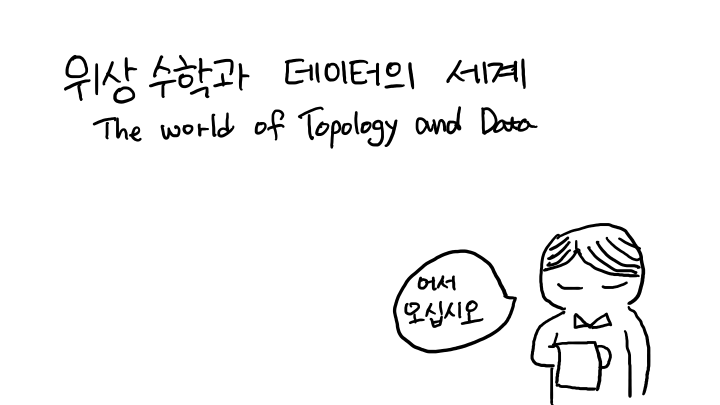 위상 수학과 데이터의 세계
The world of Topology and Data
어서
오십시오